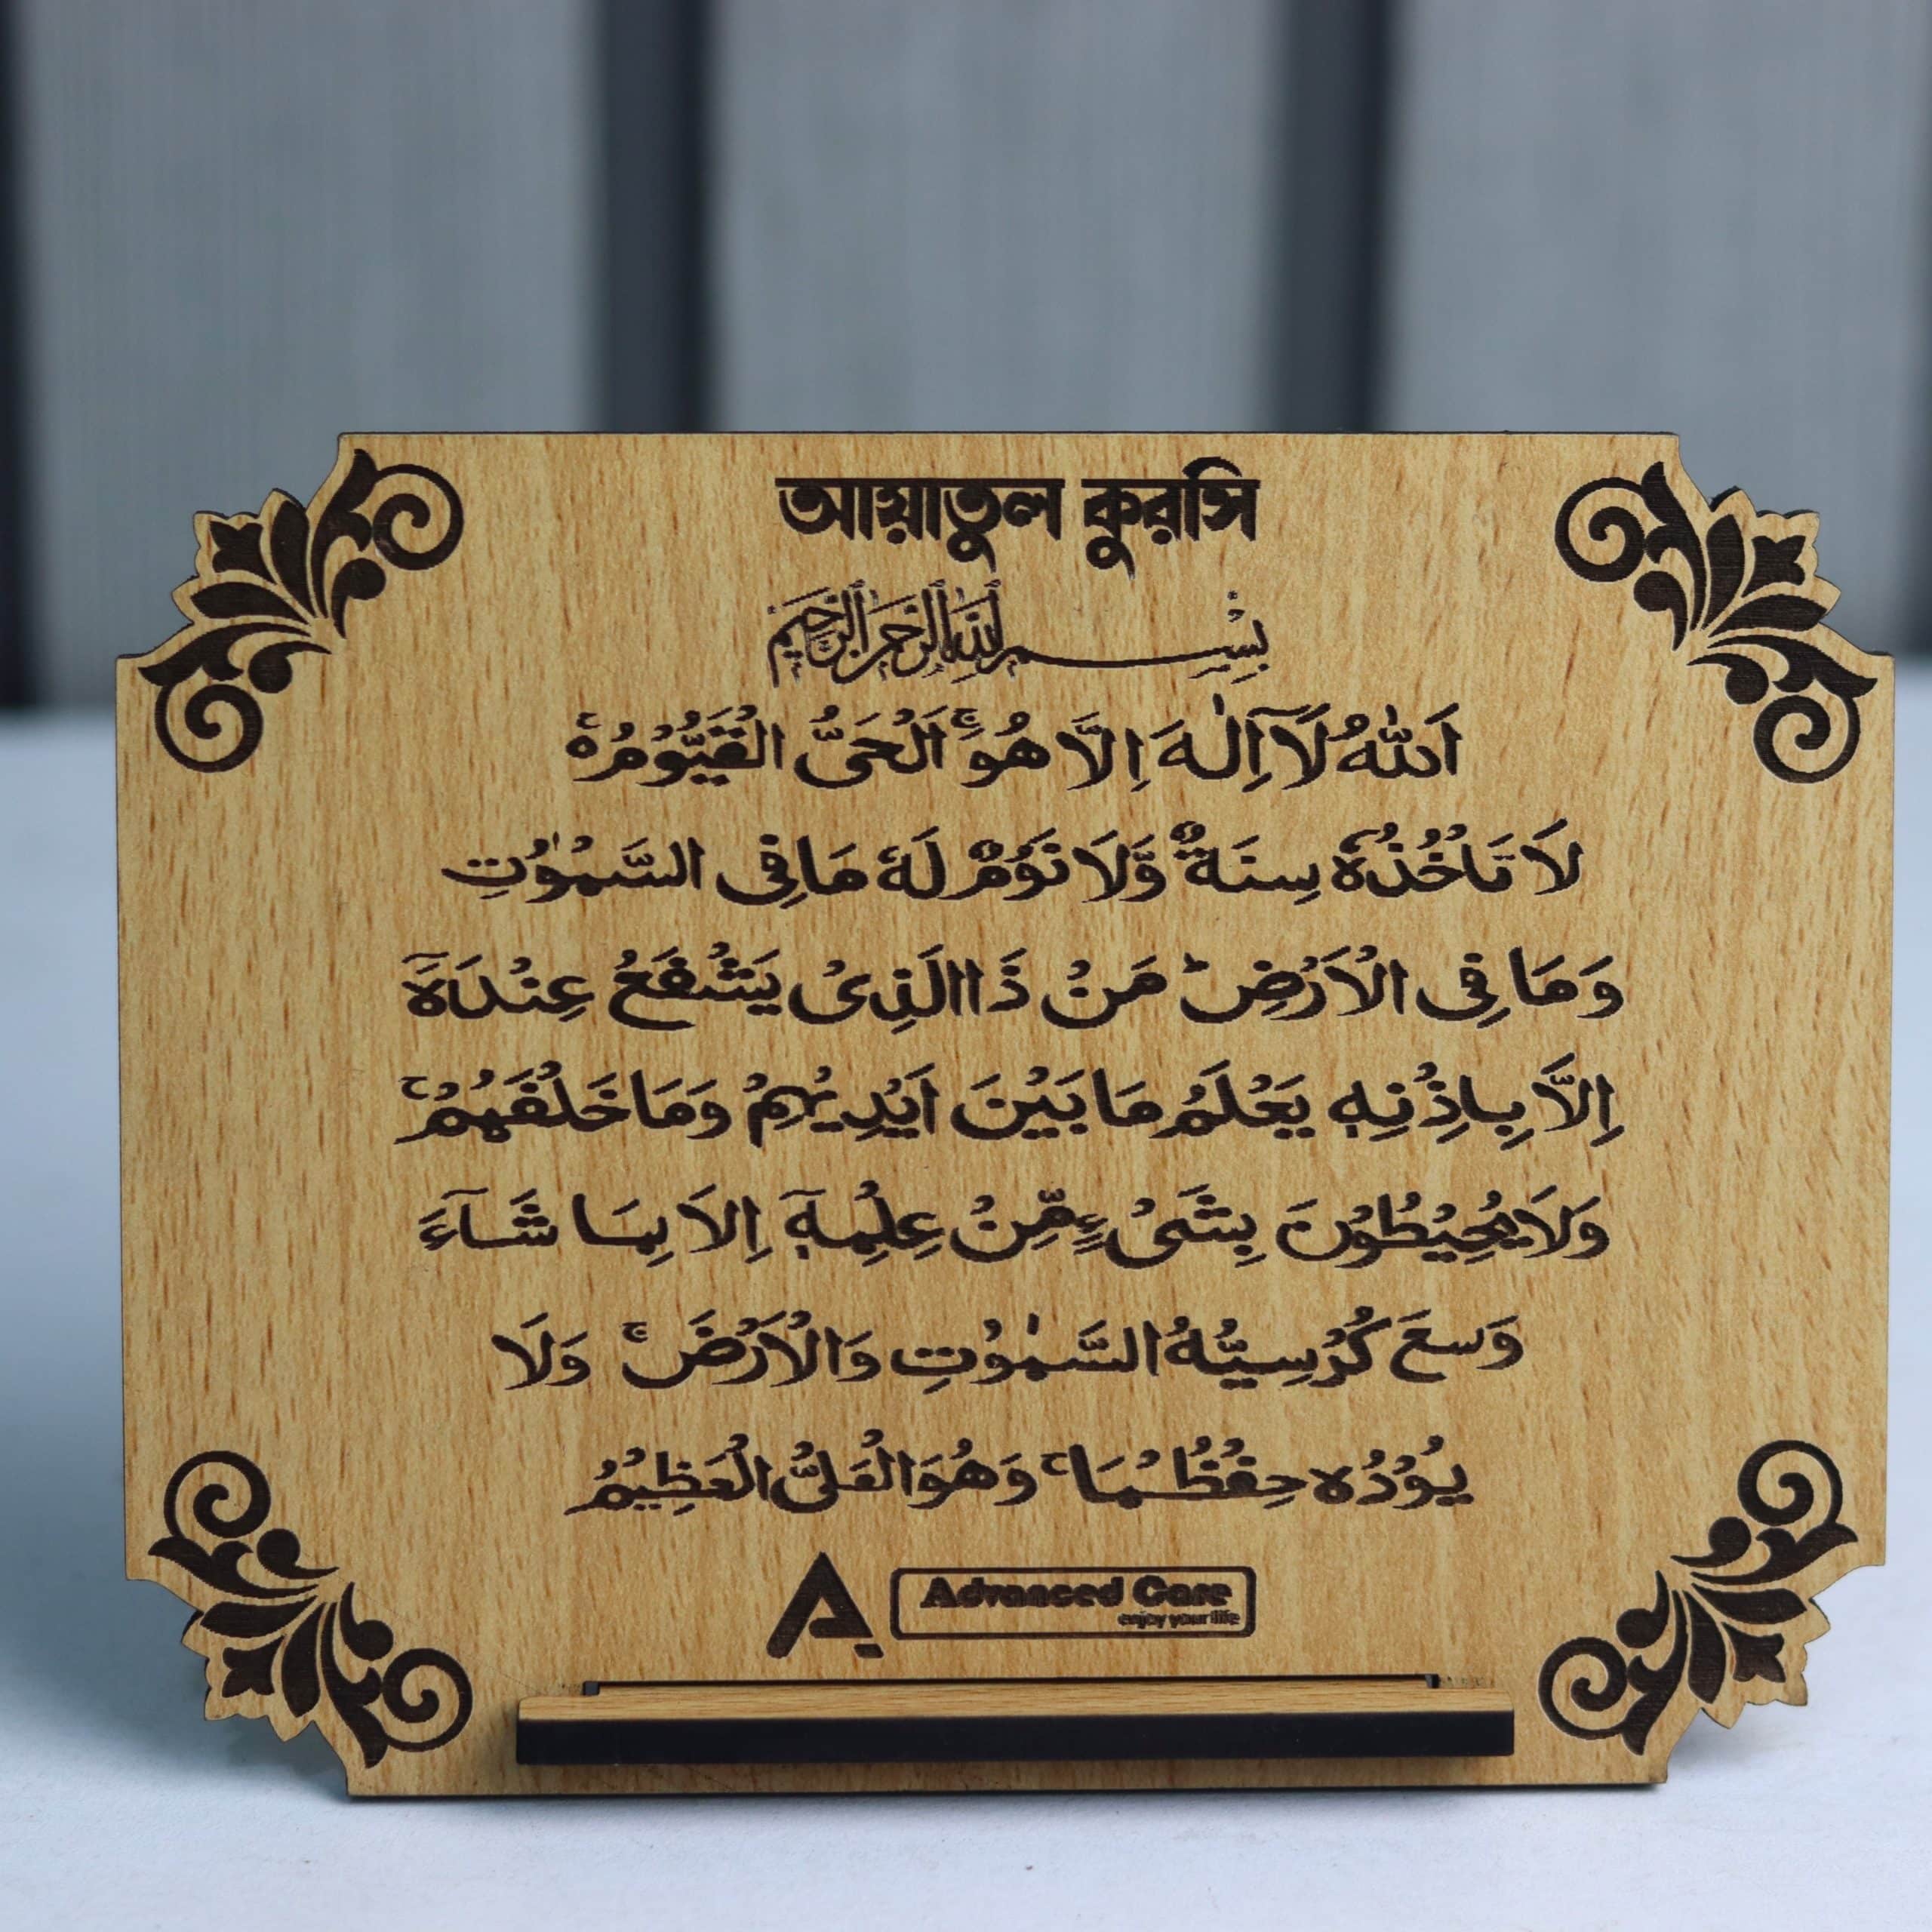 আয়াতুল কুরসি
بِسْمِ اللهِ الرَّحْمٰنِ الرَّحِيْمِ
اَللّٰهُ لَآ اِلٰهَ اِلَّا هُوَ ۚ اَلْحَيُّ الْقَيُّوْمُ ۚ
لَا تَاْخُذُهٗ سِنَةٌ وَّلَا نَوْمٌ لَهٗ مَا فِى السَّمٰوٰتِ
وَمَا فِى الْاَرْضِ ؕ مَنْ ذَا الَّذِىْ يَشْفَعُ عِنْدَهٗٓ
اِلَّا بِاِذْنِهٖ يَعْلَمُ مَا بَيْنَ اَيْدِيْهِمْ وَمَا خَلْفَهُمْ ۚ
وَلَا يُحِيْطُوْنَ بِشَىْءٍ مِّنْ عِلْمِهٖٓ اِلَّا بِمَا شَآءَ
وَسِعَ كُرْسِيُّهُ السَّمٰوٰتِ وَالْاَرْضَ ۚ وَلَا
يَــُٔوْدُهٗ حِفْظُهُمَا ۚ وَهُوَ الْعَلِىُّ الْعَظِيْمُ
Advanced Care
enjoy your life